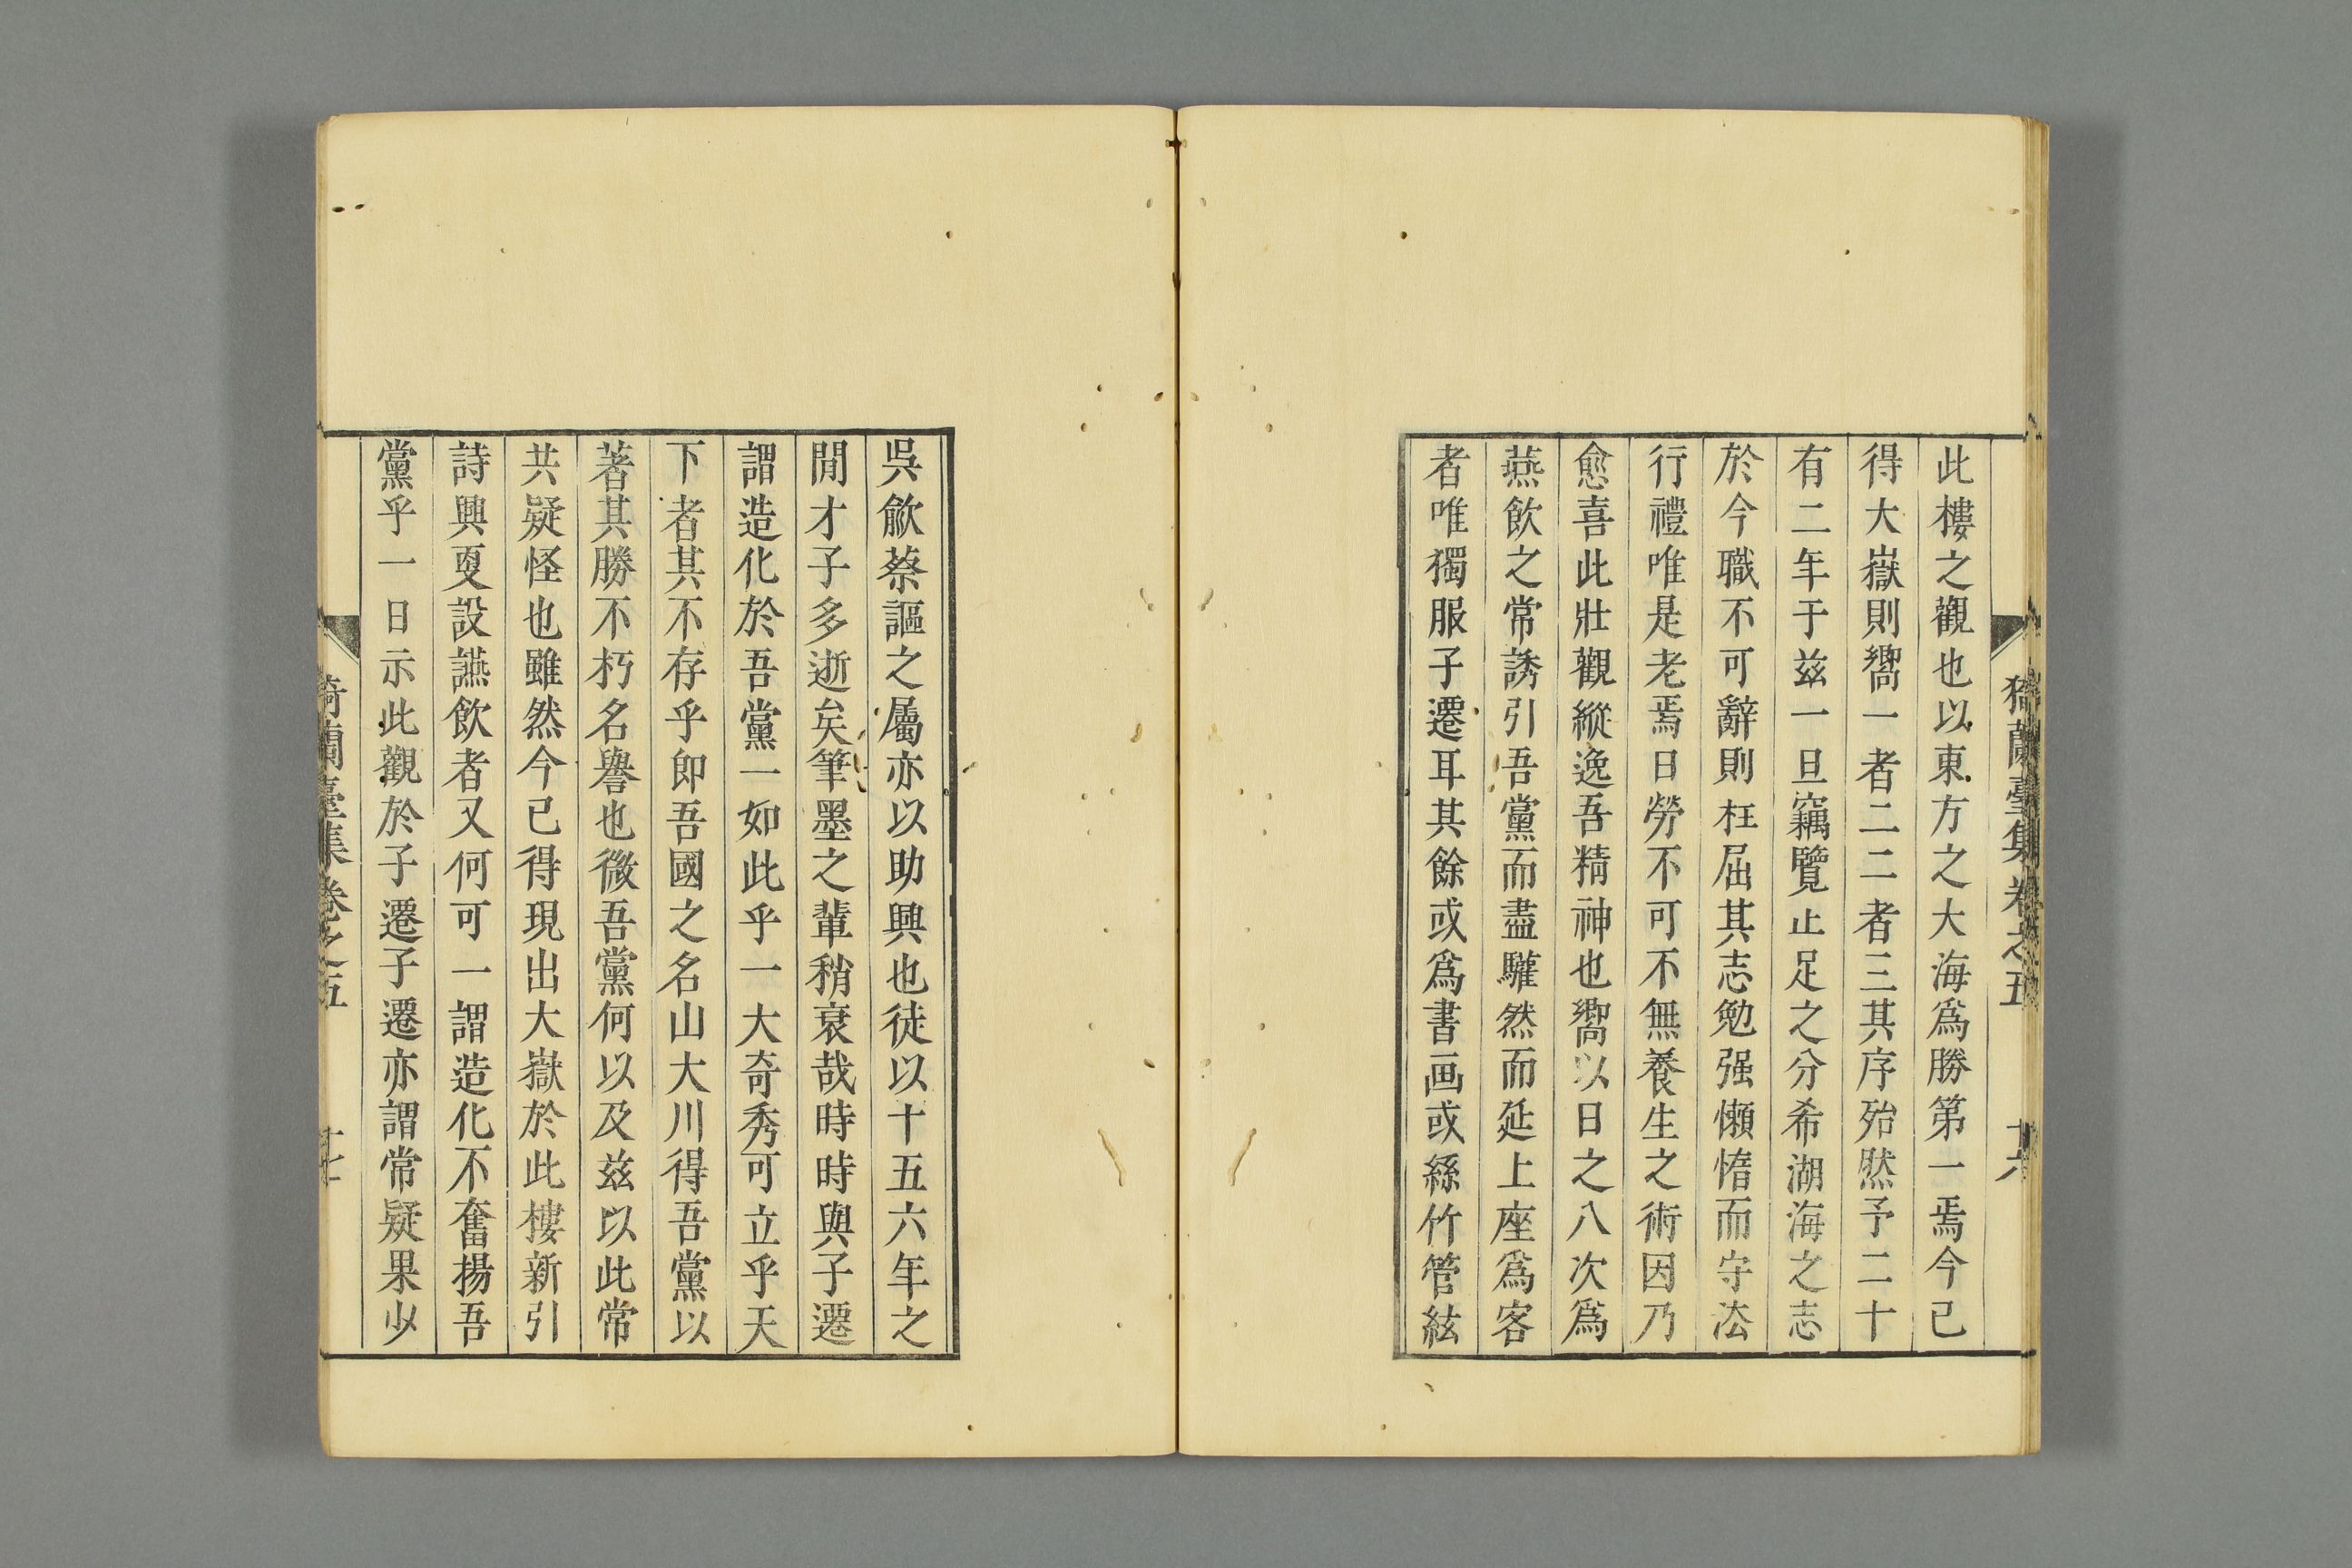 猗蘭臺集卷之五 十六
此樓之觀也以東方之大海爲勝第一焉今已
得大嶽則嚮一者二二者三其序殆然予二十
有二年于兹一旦竊覽止足之分希湖海之志
於今職不可辭則枉屈其志勉强懶惰而守法
行禮唯是老焉日勞不可不無養生之術因乃
愈喜此壯觀縱逸吾精神也嚮以日之八次爲
燕飲之常誘引吾黨而盡驩然而延上座爲客
者唯獨服子遷耳其餘或爲書画或絲竹管絃
吳歈蔡謳之屬亦以助興也徒以十五六年之
閒才子多逝矣筆墨之輩稍衰哉時時與子遷
謂造化於吾黨一如此乎一大奇秀可立乎天
下者其不存乎即吾國之名山大川得吾黨以
著其勝不朽名譽也微吾黨何以及兹以此常
共疑怪也雖然今已得現出大嶽於此樓新引
詩興更設讌飲者又何可一謂造化不奮揚吾
黨乎一日示此觀於子遷子遷亦謂常疑果少
猗蘭臺集卷之五 十七